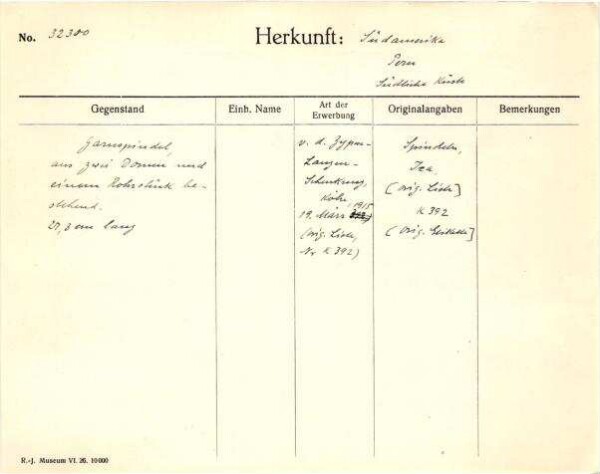 No. 32300
Herkunft: Südamerika
Peru
Südliche Küste
Gegenstand
Einh. Name
Art der Erwerbung
Originalangaben
Bemerkungen
Garnspindel,
aus zwei Dornen und
einem Rohrstück be-
stehend.
cm lang
v. d. Zypen-
Langen-
Schenkung,
Köln,
19. März 1915
(orig. Liste,
Nr K 392)
Spindeln,
Ica.
(orig. Liste]
K 392
(orig. Etikette]
R.-J. Museum VI. 26. 10000